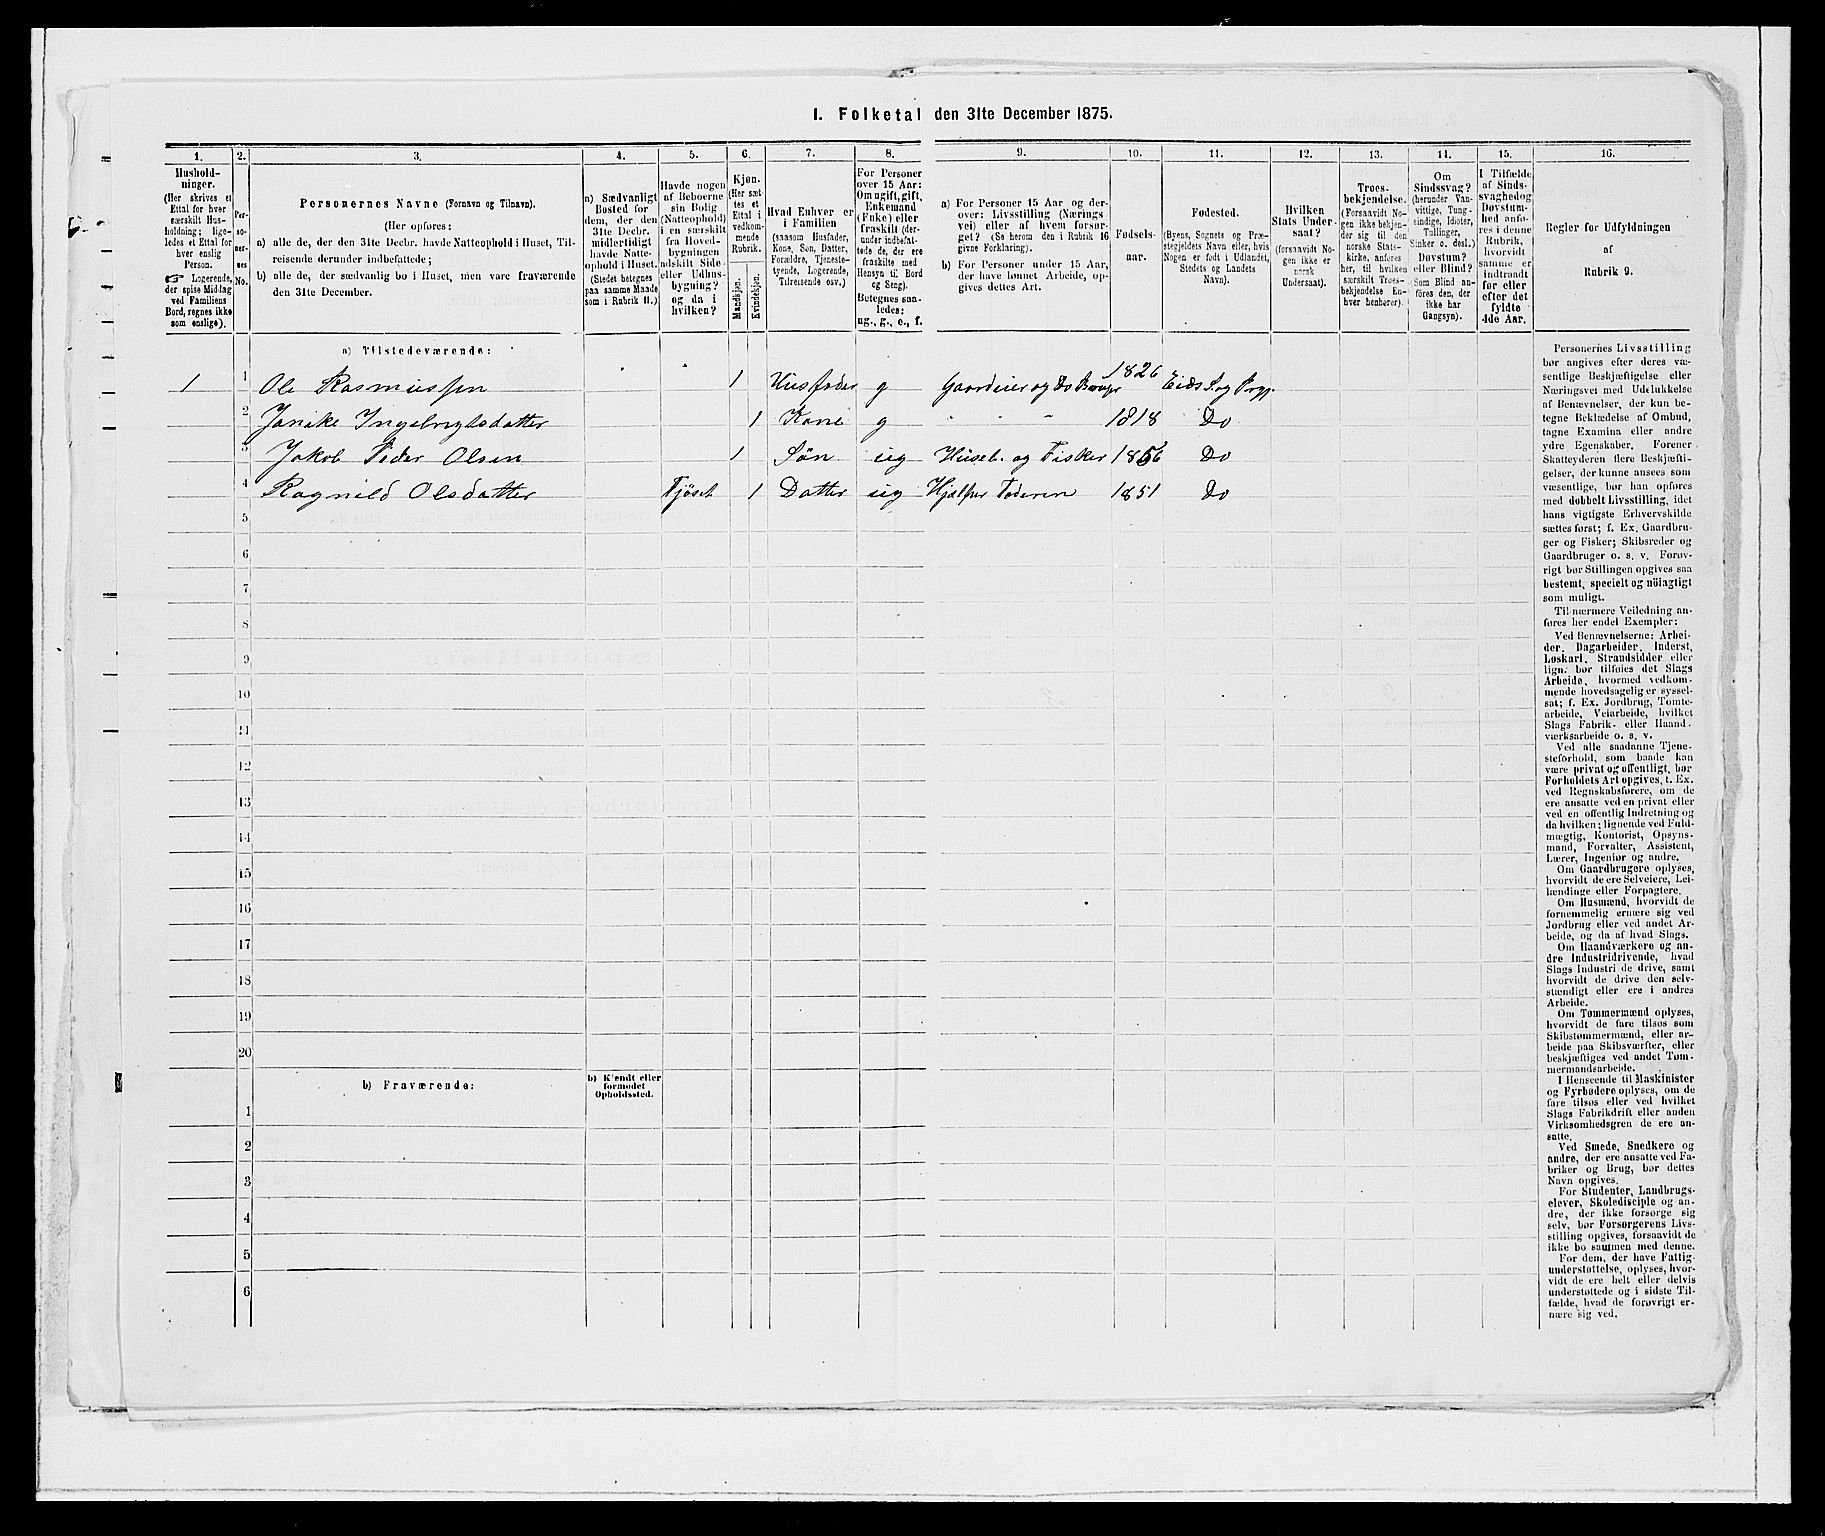 I. Folketal den 31te December 1875.
1. 2. 3. 4. 5. 6. 7. 8. 9. 10. 11. 12. 13. 14. 15. 16.
Hushold-
ninger.
(Her skrives et
Ettal for hver
særskilt Hus-
holdning; lige-
ledes et Ettal for
hver enslig
Person.
☞ Logerende,
der spise Middag
ved Familiens
Bord, regnes ikke
som enslige).
Per-
so-
ner-
nes
No.
Personernes Navne (Fornavn og Tilnavn).
(Her opføres:
a) alle de, der den 31te Decbr. havde Natteophold i Huset, Til-
reisende derunder indbefattede;
b) alle de, der sædvanlig bo i Huset, men vare fraværende
den 31te December.
a) Sædvanligt
Bosted for
dem, der den
31te Decbr.
midlertidigt
havde Natte-
ophold i Huset.
(Stedet betegnes
paa samme Maade
som i Rubrik 11.)
Havde nogen
af Beboerne
sin Bolig
(Natteophold)
i en særskilt
fra Hoved-
bygningen
adskilt Side-
eller Udhus-
bygning?
og da i
hvilken?
Kjøn.
(Her sæt-
tes et
Ettal i
vedkom-
mende
Rubrik.
Mandkjøn.
Kvindekjøn.
Hvad Enhver er
i Familien
(saasom Husfader,
Kone, Søn, Datter,
Forældre, Tjeneste-
tyende, Logerende,
Tilreisende osv.)
For Personer
over 15 Aar:
Om ugift, gift,
Enkemand
(Enke) eller
fraskilt (der-
under indbefat-
tede de, der ere
fraskilte med
Hensyn til Bord
og Seng).
Betegnes saa-
ledes:
ug., g., e., f.
a) For Personer 15 Aar og der-
over: Livsstilling (Nærings-
vei) eller af hvem forsør-
get? (Se herom den i Rubrik 16
givne Forklaring).
b) For Personer under 15 Aar,
der have lønnet Arbeide, op-
gives dettes Art.
Fødsels-
aar.
Fødested.
(Byens, Sognets og Præ-
stegjeldets Navn eller, hvis
Nogen er født i Udlandet,
Stedets og Landets
Navn).
Hvilken
Stats Under-
saat?
(forsaavidt No-
gen ikke er
norsk
Undersaat).
Troes-
bekjendelse.
(Forsaavidt No-
gen ikke bekjen-
der sig til den
norske Stats-
kirke, anføres
her, til hvilken
særskilt Troes-
bekjendelse En-
hver henhører).
Om
Sindssvag?
(herunder Van-
vittige, Tung-
sindige, Idioter,
Tullinger,
Sinker o. desl.)
Døvstum?
eller Blind?
Som Blind an-
føres den, der
ikke har
Gangsyn).
I Tilfælde
af Sinds-
svaghed og
Døvstum-
hed anfø-
res i denne
Rubrik,
hvorvidt
samme er
indtraadt
før eller
efter det
fyldte
4de Aar.
Regler for Udfyldningen
af
Rubrik 9.
a) Tilstedeværende:
1 1 Ole Rasmussen 1 Husfader g Gaardeier og 1826 Eids S. og Prgj.
2 Janike Ingebrigtsdatter 1 Kone g " " " 1818 Do
3 Jakob Peder Olsen 1 Søn ug Huseb. og Fisker 1856 Do
4 Ragnild Olsdatter Fjøset 1 Datter ug Hjælper Faderen 1851 Do
5
6
7
8
9
10
11
12
13
14
15
16
17
18
19
20
b) Fraværende:
b) Kjendt eller
formodet
Opholdssted.
1
2
3
4
5
6
Personernes Livsstilling
bør angives efter deres væ-
sentlige Beskjæftigelse eller
Næringsvei med Udelukkelse
af Benævnelser, der kun be-
tegne Beklædelse af Ombud,
tagne Examina eller andre
ydre Egenskaber. Forener
Skatteyderen flere Beskjæfti-
gelser, der kunne ansees som
væsentlige, bør han opføres
med dobbelt Livsstilling, idet
hans vigtigste Erhvervskilde
sættes først; f. Ex. Gaardbru-
ger og Fisker; Skibsreder og
Gaardbruger o. s. v. Forøv-
rigt bør Stillingen opgives saa
bestemt, specielt og nöiagtigt
som muligt.
Til nærmere Veiledning an-
føres her endel Exempler:
Ved Benævnelserne: Arbei-
der, Dagarbeider, Inderst,
Løskarl, Strandsidder eller
lign. bør tilføies det Slags
Arbeide, hvormed vedkom-
mende hovedsagelig er syssel-
sat; f. Ex. Jordbrug, Tomte-
arbeide, Veiarbeide, hvilket
Slags Fabrik- eller Haand-
værksarbeide o. s. v.
Ved alle saadanne Tjene-
steforhold, som baade kan
være privat og offentligt, bør
Forholdets Art opgives, t. Ex.
ved Regnskabsførere, om de
ere ansatte ved en privat eller
ved en offentlig Indretning og
da hvilken; lignende ved Fuld-
mægtig, Kontorist, Opsyns-
mand, Forvalter, Assistent,
Lærer, Ingeniør og andre.
Om Gaardbrugere oplyses,
hvorvidt de ere Selveiere, Lei-
lændinge eller Forpagtere.
Om Husmænd, hvorvidt de
fornemmelig ernære sig ved
Jordbrug eller ved andet Ar-
beide, og da af hvad Slags.
Om Haandværkere og an-
dre Industridrivende, hvad
Slags Industri de drive, samt
hvorvidt de drive den selv-
stændigt eller ere i andres
Arbeide.
Om Tømmermænd oplyses,
hvorvidt de fare tilsøs som
Skibstømmermænd, eller ar-
beide paa Skibsværfter, eller
beskjæftiges ved andet Tøm-
mermandsarbeide.
I Henseende til Maskinister
og Fyrbødere oplyses, om de
fare tilsøs eller ved hvilket
Slags Fabrikdrift eller anden
Virksomhedsgren de ere an-
satte.
Ved Smede, Snedkere og
andre, der ere ansatte ved Fa-
briker og Brug, bør dettes
Navn opgives.
For Studenter, Landbrugs-
elever, Skoledisciple og an-
dre, der ikke forsørge sig
selv, bør Forsørgerens Livs-
stilling opgives, forsaavidt de
ikke bo sammen med denne.
For dem, der have Fattig-
understøttelse, oplyses, hvor-
vidt de ere helt eller delvis
understøttede og i sidste Til-
fælde, hvad de forøvrigt er-
nære sig ved.